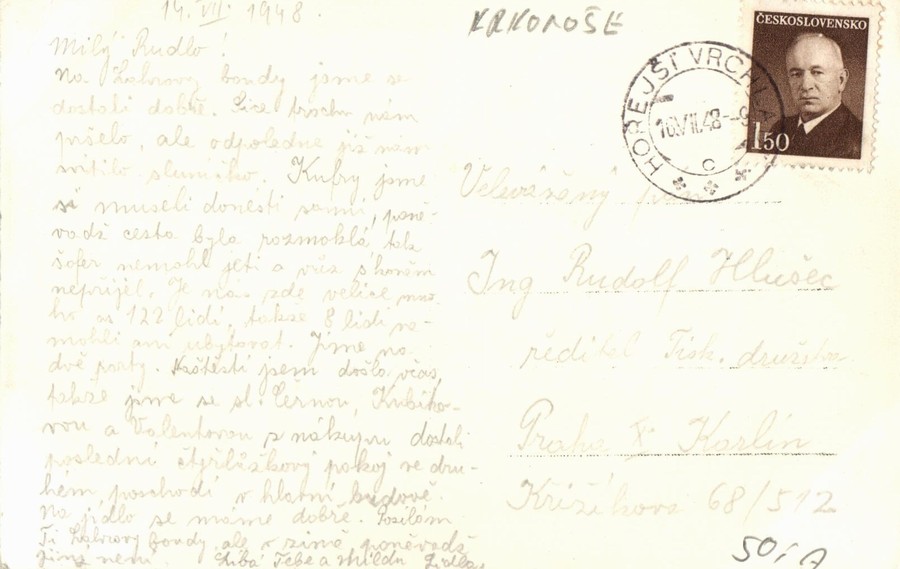 14. VII. 1948.
KRKONOŠE
ČESKOSLOVENSKO
1.50
HOŘEJŠÍ VRCHLABÍ
16.VII.48
c
Milý Rudlo!
Na Labskou boudy jsme se
dostali dobře. Sice trochu nám
pršelo, ale odpoledne již nám
svítilo sluníčko. Kufry jsme
si museli donésti sami, pone-
vadž cesta byla rozmoklá, tak
šofer nemohl jeti a vůz s koněm
nepřijel. Je nás zde velice mno-
ho as 122 lidí, takže 8 lidí ne-
mohli ani ubytovat. Jíme na
dvě party. Naštěstí jsem došla včas,
takže jsme se sl. Černou, Kubíko-
vou a Valentovou z nákupu dostali
poslední čtyřlůžkový pokoj ve dru-
hém poschodí v hlavní budově.
Na jídlo se máme dobře. Posílám
Ti boudy ale v zimě poněvadž
jiná není. Líbá Tebe a Míldu
Velevážený pan
Ing Rudolf Hlušec
ředitel Tisk. družstva
Praha X Karlín
Křižíkova 68/512